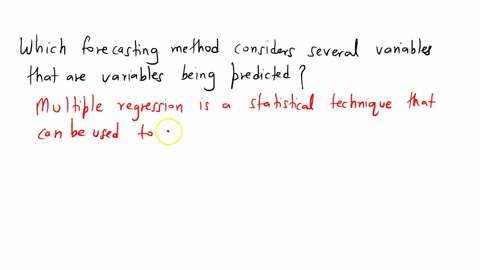 Which forecasting method considers several variables
that are variables being predicted?
Multiple regression is a statistical technique that
can be used to